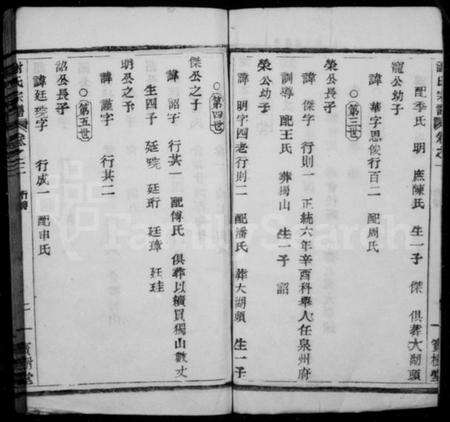 謝氏宗譜 卷之一
配李氏 明 庶陳氏 生一子 傑 俱葬大湖頭
寵公幼子
諱 華字思俊行百二 配周氏
第三世
榮公長子
諱 傑字 行則一 正統六年辛酉科舉人任泉州府
訓導 配王氏 葬揚山 生一子 詔
榮公幼子
諱 明字四老行則二 配潘氏 葬大湖頭 生一子
第四世
傑公之子
諱 詔字 行其一 配傅氏 俱葬以續買獨山數丈
生四子 廷琬 廷珩 廷璋 廷珪
明公之子
諱 議字 行其二
第五世
詔公長子
諱廷琬字 行成一 配申氏
謝氏宗譜 卷之二
寶樹堂
FamilySearch